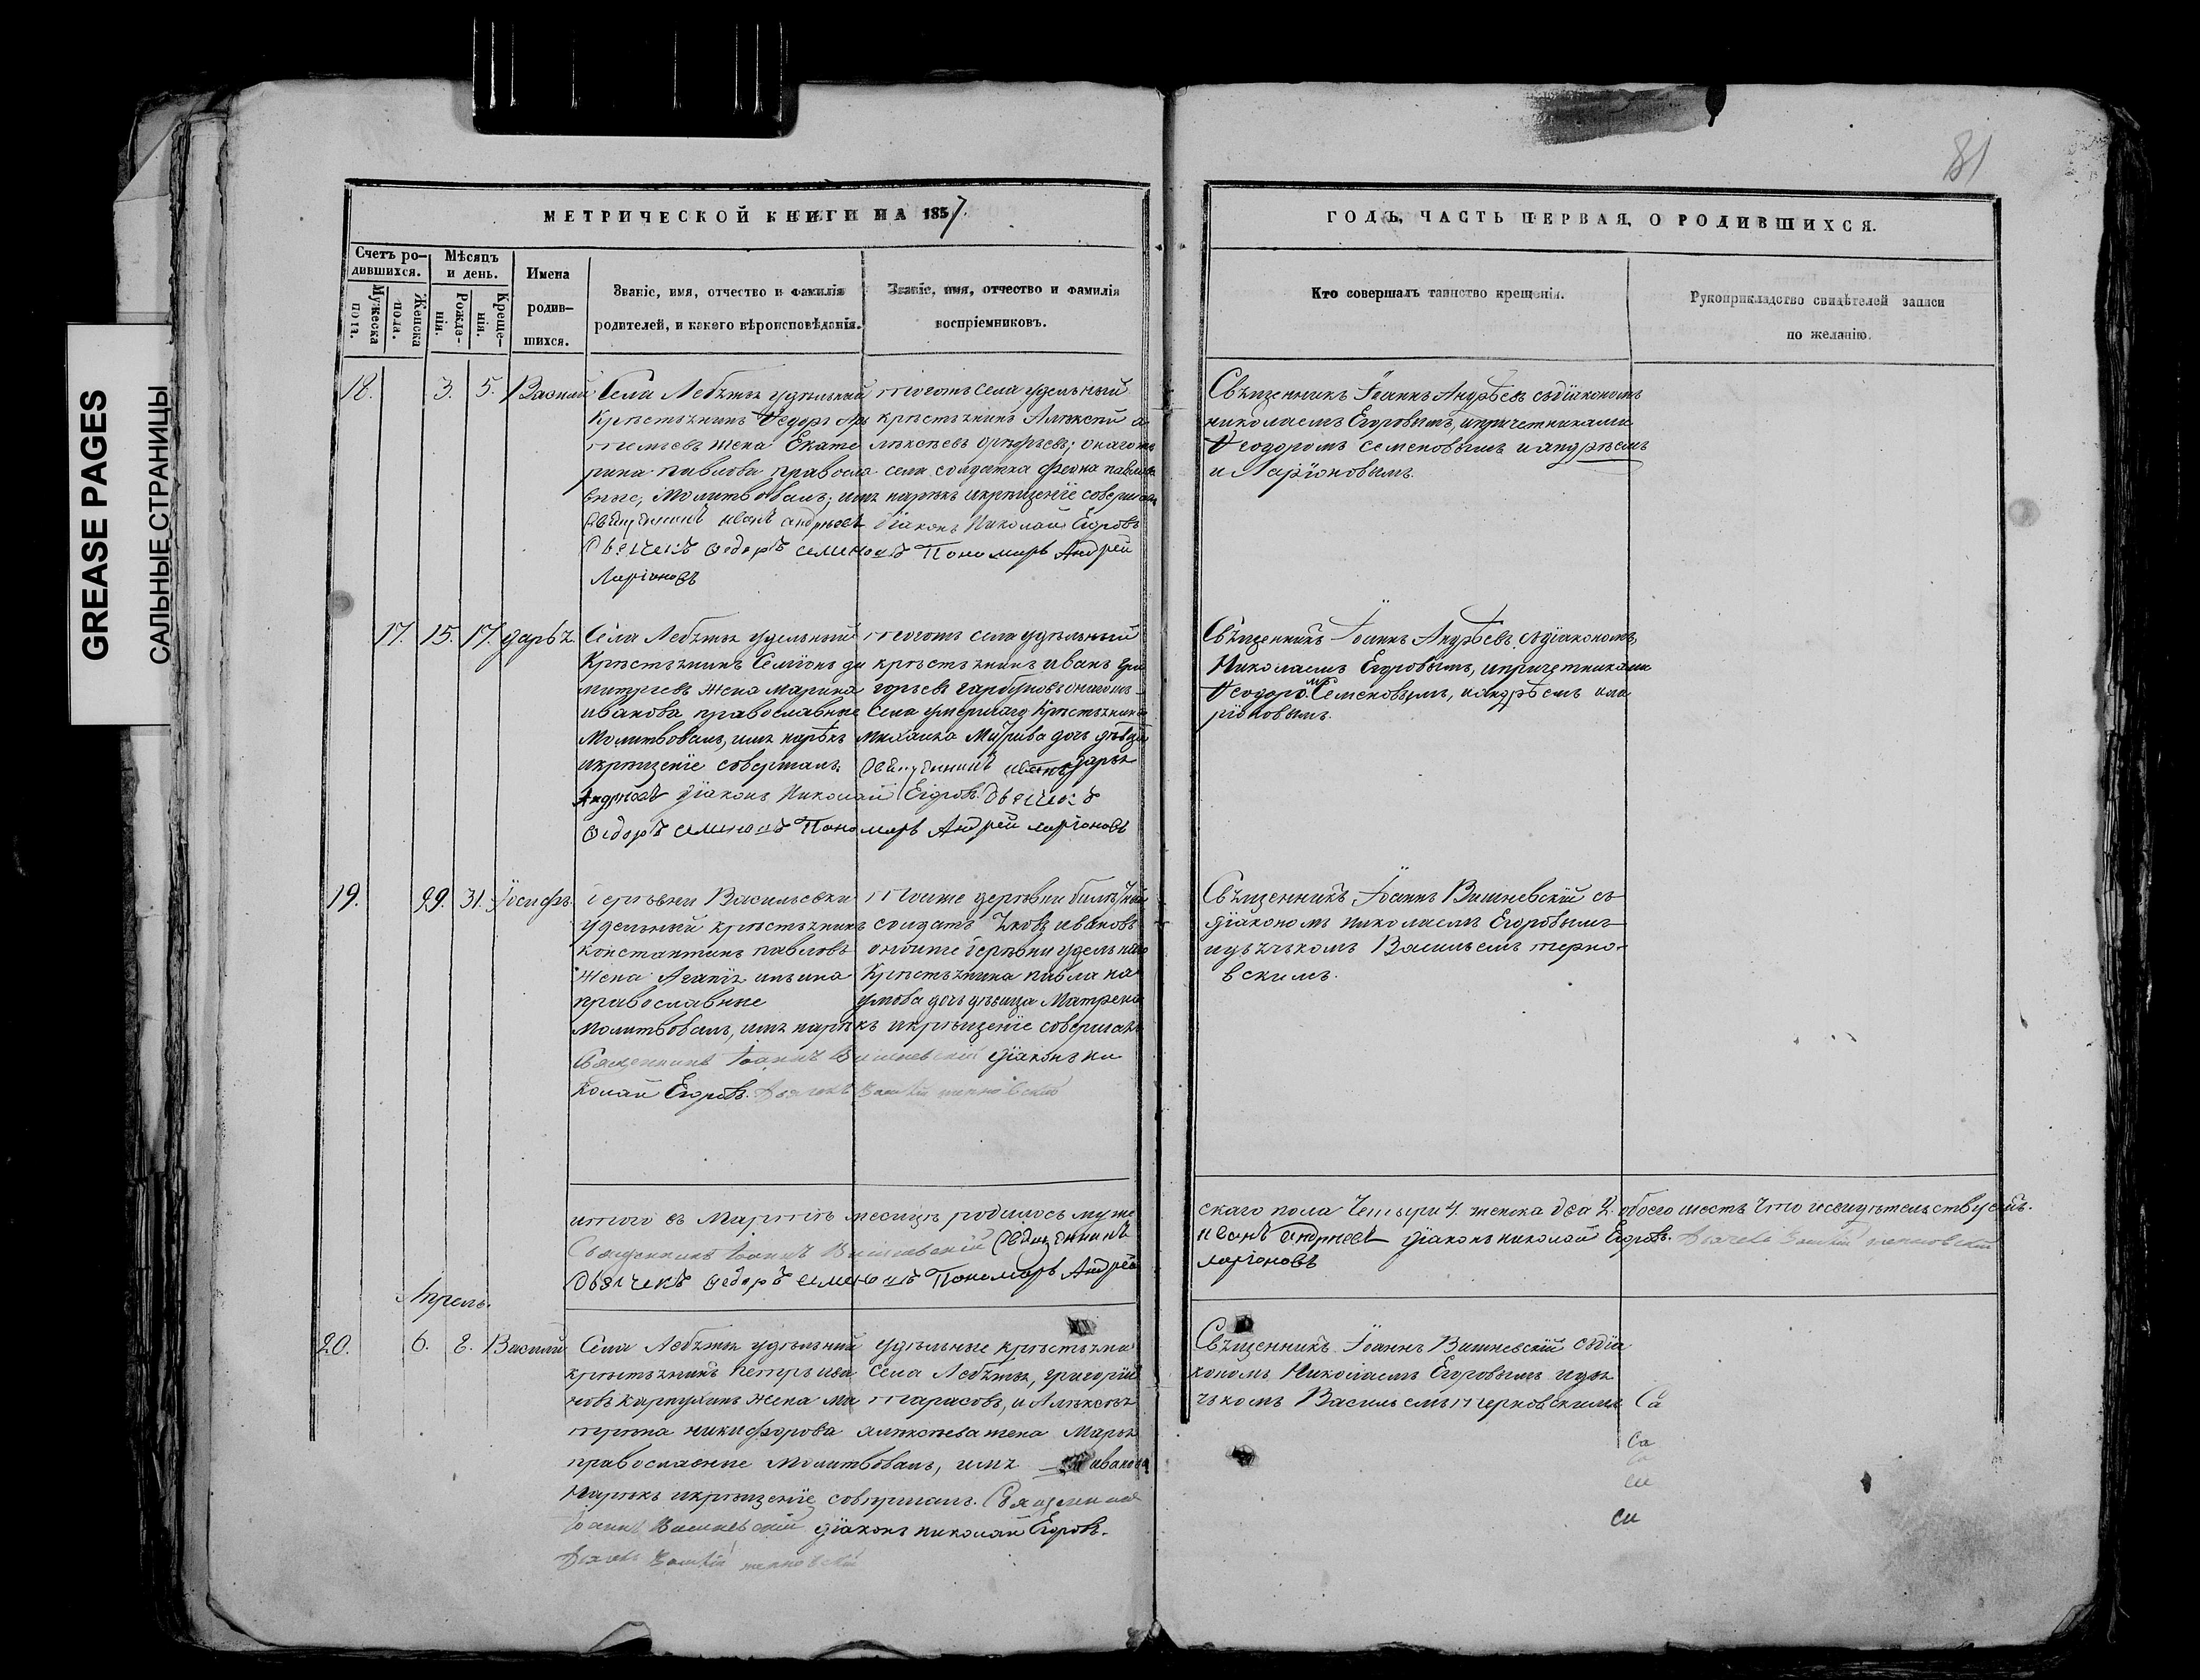 GREASE PAGES
САЛЬНЫЕ СТРАНИЦЫ
81
МЕТРИЧЕСКОЙ КНИГИ НА 1857.
ГОДЪ, ЧАСТЬ ПЕРВАЯ, О РОДИВШИХСЯ.
Счетъ ро-
дившихся.
Мужеска
пола.
Женска
пола.
Мѣсяцъ
и день.
Рожде-
нія.
Креще-
нія.
Имена
родив-
шихся.
Званіе, имя, отчество и фамилія
родителей, и какого вѣроисповѣданія.
Званіе, имя, отчество и фамилія
воспріемниковъ.
Кто совершалъ таинство крещенія.
Рукоприкладство свидѣтелей записи
по желанію.
18. 3. 5. Василий
Села Лебяжъя удѣльный
Крѣстьянинъ Ѳедоръ Ар
темьевъ жена Екате
рина павлова правосла
вные, Молитвовалъ, имя нарѣкъ икрѣщеніе совершалъ
Священникъ иванъ андреевъ діаконъ Николай Егоровъ
Дьячекъ Ѳедоръ семеновъ Пономарь Андрей
Ларіоновъ
тогоже села удельный
крѣстьянинъ Алѣксей а
лѣксѣевъ; онагоже
села солдатка
Священникъ Іоаннъ Андрѣевъ съдіакономъ
николаемъ Егоровымъ, ипричетниками
Ѳеодоромъ Семеновымъ иандрѣемъ
и Ларіоновымъ.
17. 15. 17. дарья.
Села Лебяжъя удельный
Крѣстьянинъ Семіонъ ди
митріевъ жена Марина
иванова православные
Молитвовалъ, имя нарѣкъ
икрѣщеніе совершалъ. Священникъ иванъ
Андреевъ діаконъ Николай Егоровъ. Дьячекъ
Ѳедоръ семеновъ Пономарь Андрей ларіоновъ
тогоже села удѣльный
крѣстьянинъ иванъ гри
горьевъ гарбуновъ онагоже
Села умершаго Крѣстьянина
Михаила дочь дѣвица
дарья
Священникъ Іоаннъ Андрѣевъ, съдіакономъ,
Николаемъ Егоровымъ, ипричетниками
Ѳеодоромъ Семеновымъ, иандрѣемъ ила
ріоновымъ.
19. 29. 31. Іосифъ.
деревни Васильевки
удельный крѣстьянинъ
Константинъ павловъ
Жена Агапія ильина
православные
Молитвовалъ, имя нарѣкъ икрѣщеніе совершалъ
Священникъ Іоаннъ Вишневскій діаконъ ни
колай Егоровъ. Дьячекъ Василій терновскій
тойже деревни
солдатъ Яковъ ивановъ
онойже деревни удельнаго
Крѣстьянина павла на
умова дочь дѣвица Матрена
Священникъ Іоаннъ Вишневскій съ
діакономъ николаемъ Егоровымъ
идьячкомъ Васильемъ терно-
вскимъ.
итого въ Мартѣ месяцѣ родилось муже
скаго пола Четыри 4. женска два 2. обоего шесть Что исвидѣтельствуемъ.
Священникъ Іоаннъ Вишневскій Священникъ
иванъ андреевъ діаконъ николай Егоровъ. Дьячекъ Василій терновскій
Дьячекъ Ѳедоръ семеновъ Пономарь Андрей
ларіоновъ
Апрель.
20. 6. 8. Василий
Села Лебяжъя удѣльный
крѣстьянинъ Петръ ива
новъ Карпухинъ жена ма
трѣна никифорова
православные Молитвовалъ, имя
Нарѣкъ икрѣщеніе совершалъ. Священникъ
Іоаннъ Вишневскій діаконъ николай Егоровъ.
Дьячекъ Василій терновскій
Удѣльные крѣстьяни
Села Лебяжъя, григорій
тарасовъ, и Алѣксѣя
алѣксѣева жена Марья
иванова
Священникъ Іоаннъ Вишневскій съдіа
кономъ Николаемъ Егоровымъ идья
чкомъ Васильемъ терновскимъ